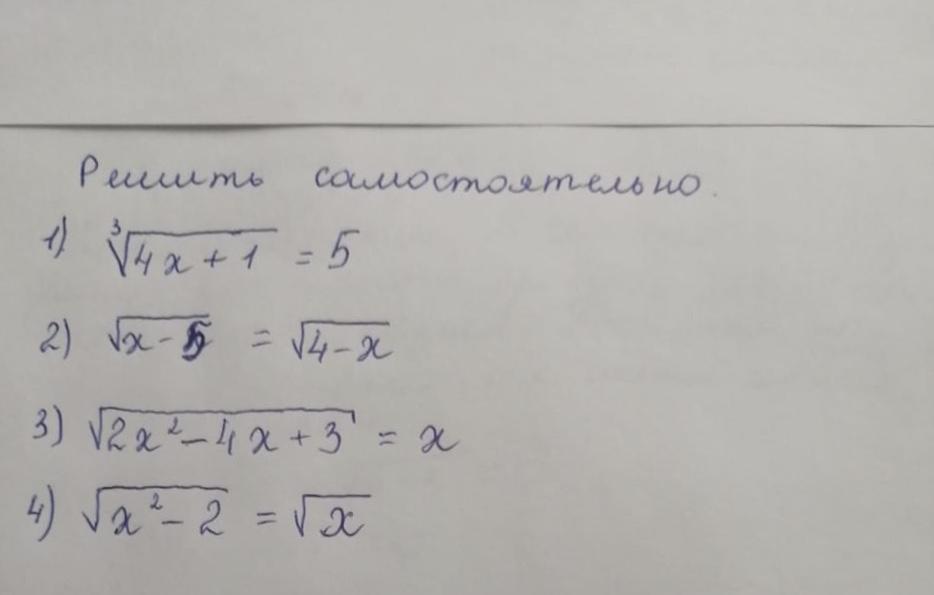 Решить самостоятельно.
1) ∛(4x + 1) = 5
2) √(x - 5) = √(4 - x)
3) √(2x² - 4x + 3) = x
4) √(x² - 2) = √x